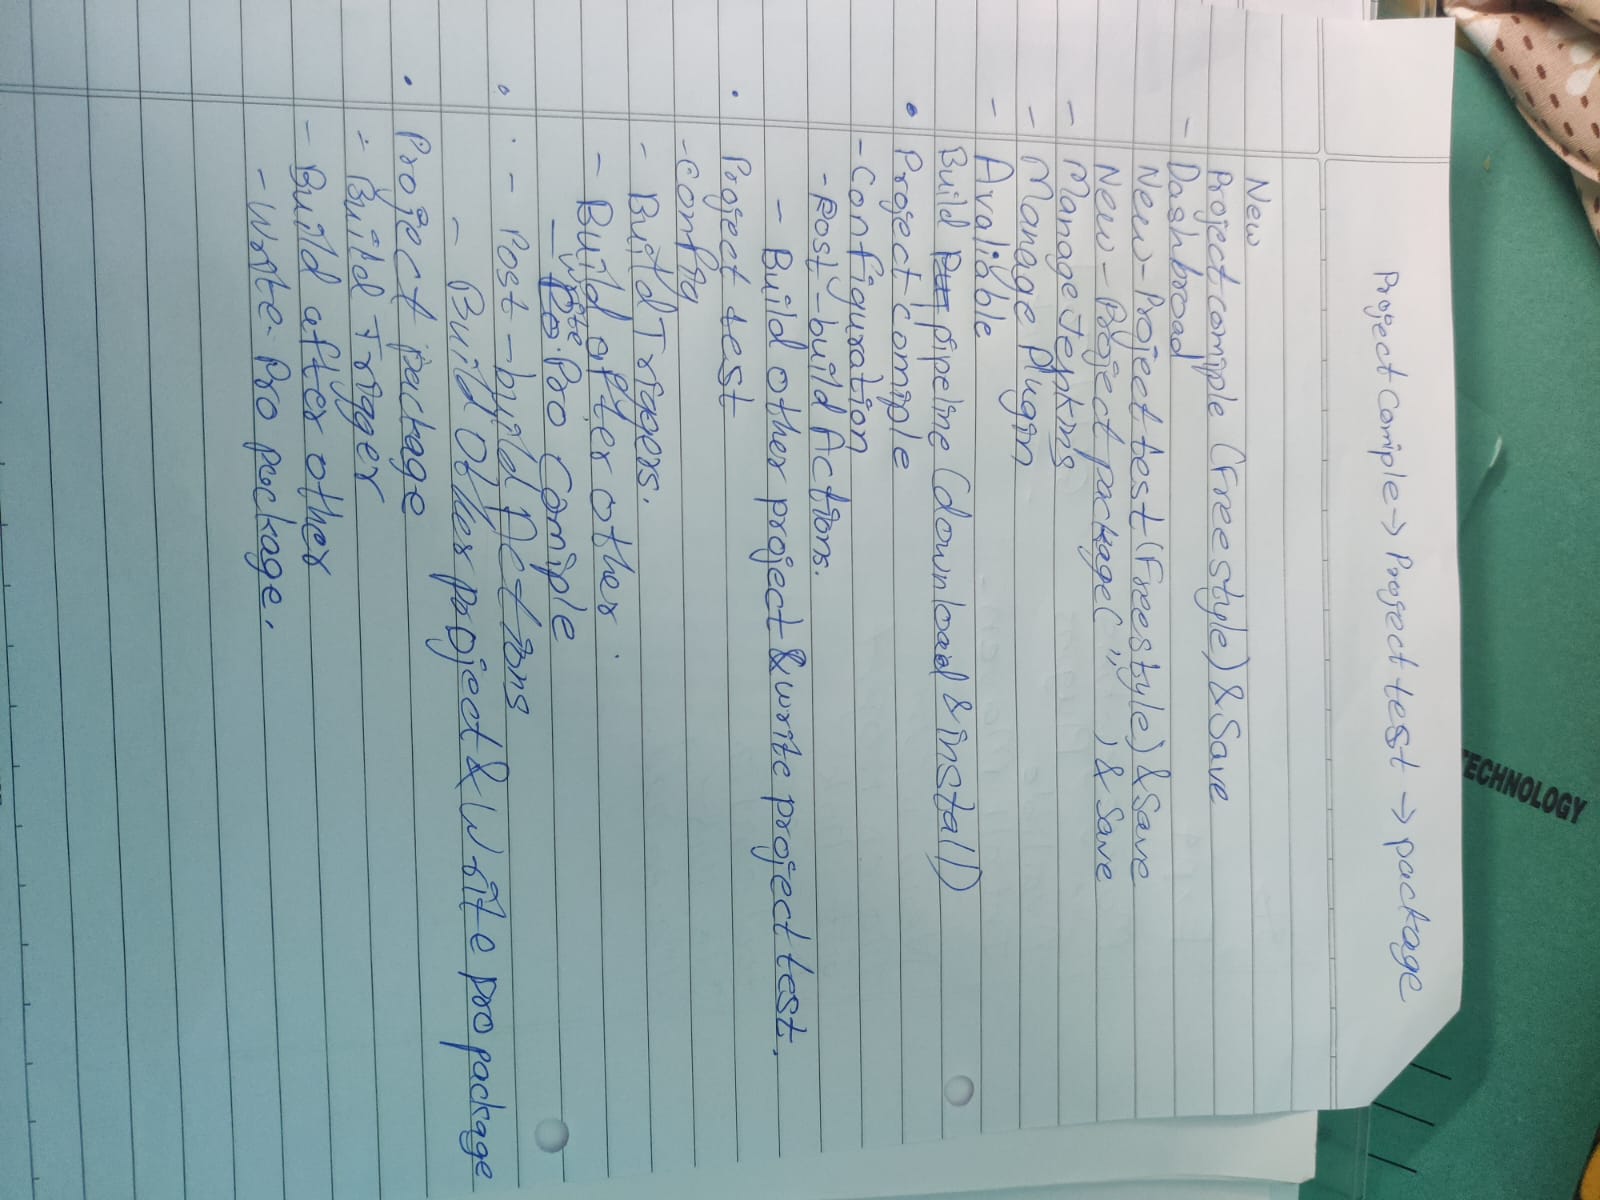 Project comiple → Project test → package
New
Project comiple (Freestyle) & Save
- Dashbroad
New - Project test (Freestyle) & Save
New - Project package( ,, ) & Save
- Manage Jenkins
- Manage plugin
- Avalible
Build pipeline (download & install)
• Project Comiple
- Configuration
- Post - build Actions.
- Build other project & write project test.
• Project test
- config
- Build Triggers.
- Build after other.
- write Pro Comiple
• - Post - build Actions
- Build Other project & Write pro package
• Project package
- Build Trigger
- Build after other
- Write Pro package.
TECHNOLOGY